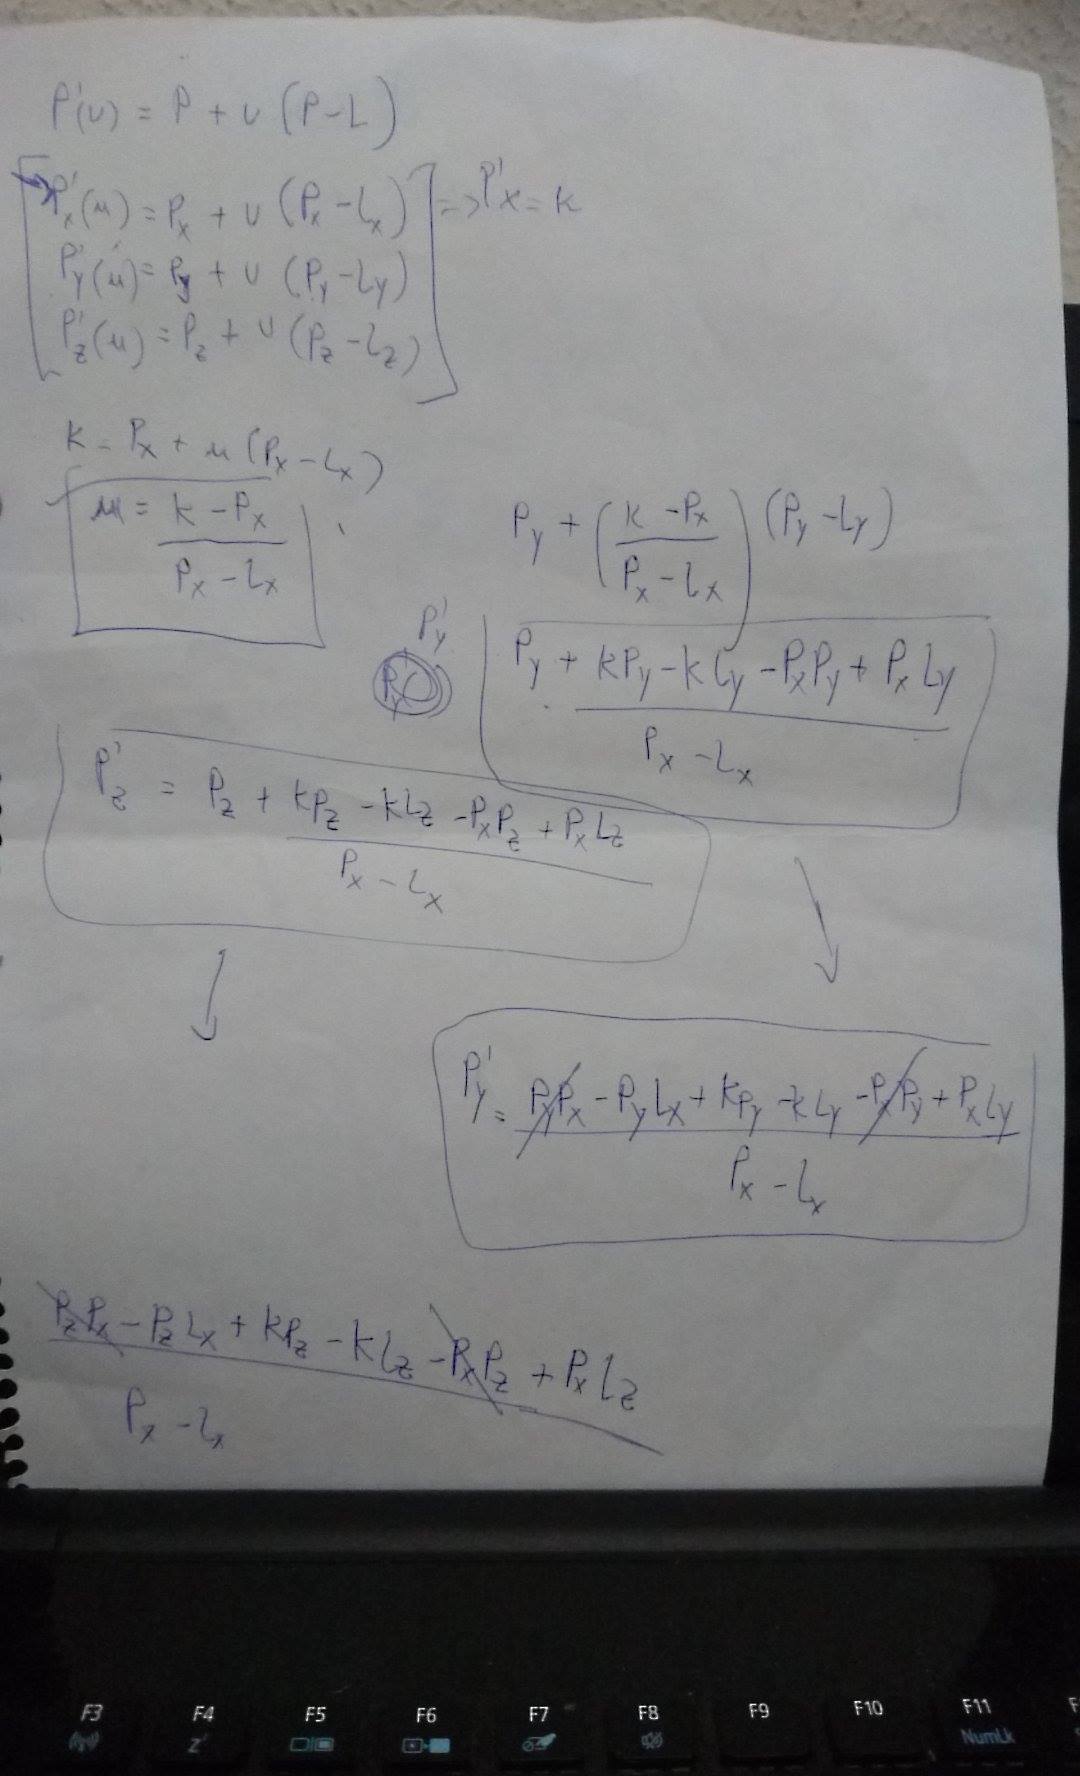 P'(u) = P + u (P - L)
P'x(μ) = Px + u (Px - Lx) => P'x = k
P'y(μ) = Py + u (Py - Ly)
P'z(μ) = Pz + u (Pz - Lz)
k = Px + μ (Px - Lx)
μ = (k - Px) / (Px - Lx)
Py + ((k - Px) / (Px - Lx)) (Py - Ly)
P'y Py + (kPy - kLy - PxPy + PxLy) / (Px - Lx)
P'z = Pz + (kPz - kLz - PxPz + PxLz) / (Px - Lx)
P'y = (PyPx - PyLx + kPy - kLy - PxPy + PxLy) / (Px - Lx)
(PzPx - PzLx + kPz - kLz - PxPz + PxLz) / (Px - Lx)
F3 F4 F5 F6 F7 F8 F9 F10 F11
z² NumLk